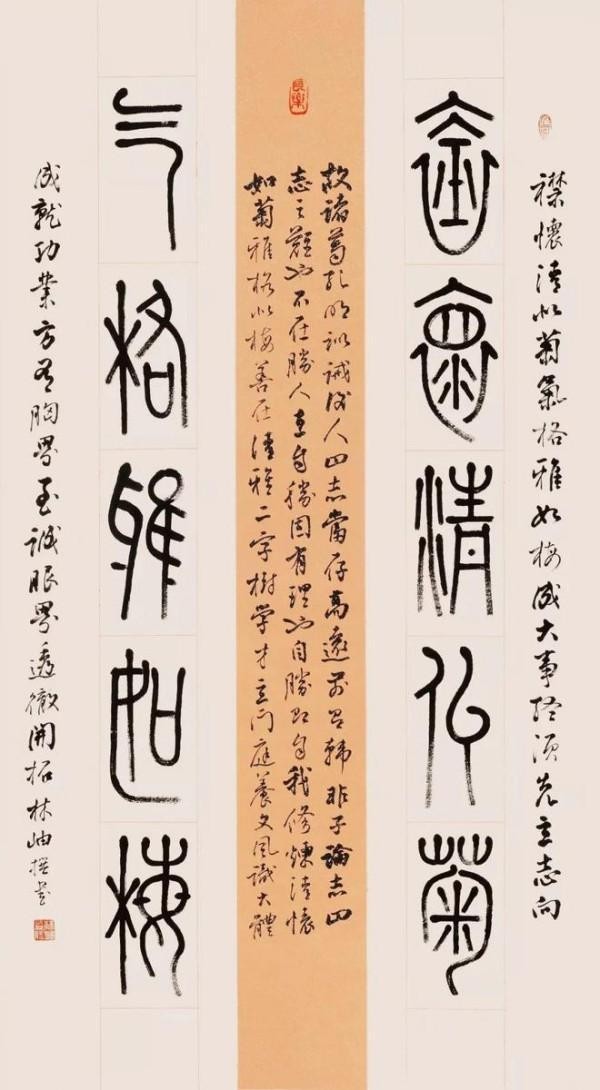 襟懷清似菊氣格雅如梅成大事終須先立志向
襟懷清似菊
長樂
故諸葛孔明訓誡後人曰志當存高遠韓非子論志曰
志之難也不在勝人在自勝固有理也自勝即自我修煉清懷
如菊雅格似梅善在清雅二字樹學才立門庭養文風識大體
气格雅如梅
成就功業方有胸界至誠眼界透徹開拓林岫撰書